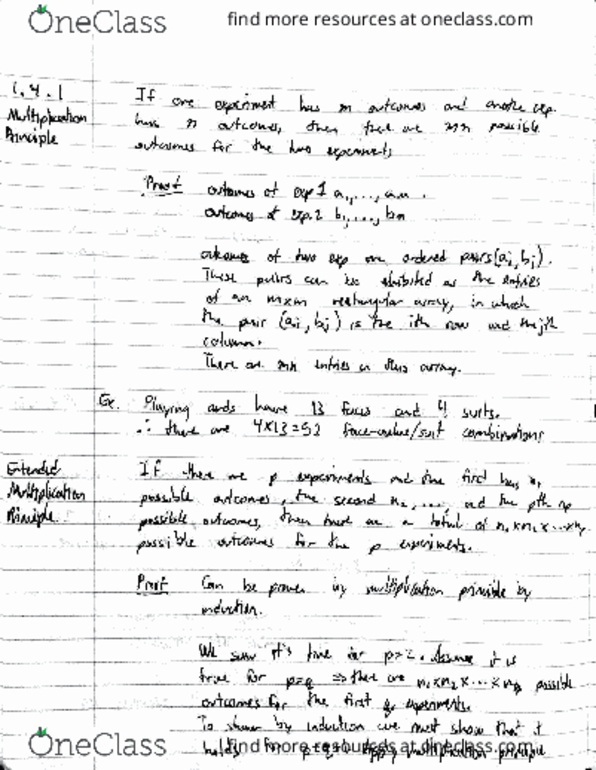 OneClass
find more resources at oneclass.com
1.4.1
Multiplication
Principle
If one experiment has m outcomes and another exp.
has n outcomes, then there are mn possible
outcomes for the two experiments
Proof outcomes of exp 1 a1,...,am.
outcomes of exp. 2 b1,...,bn
outcomes of two exp are ordered pairs (ai, bj).
These pairs can be exhibited as the entries
of an mxn rectangular array, in which
the pair (ai, bj) is the ith row and the jth
column.
There are mn entries in this array.
Ex. Playing cards have 13 faces and 4 suits.
∴ there are 4x13=52 face-value/suit combinations
Extended
Multiplication
Principle
If there are p experiments and the first has n1
possible outcomes, the second n2, ..., and the pth np
possible outcomes, then there are a total of n1 x n2 x ... x np
possible outcomes for the p experiments.
Proof Can be proven by multiplication principle by
induction.
We saw it's true for p=2. Assume it is
true for p=q ⇒ there are n1 x n2 x ... x nq possible
outcomes for the first q experiments.
To show by induction we must show that it
holds
multiplication principle
OneClass
find more resources at oneclass.com